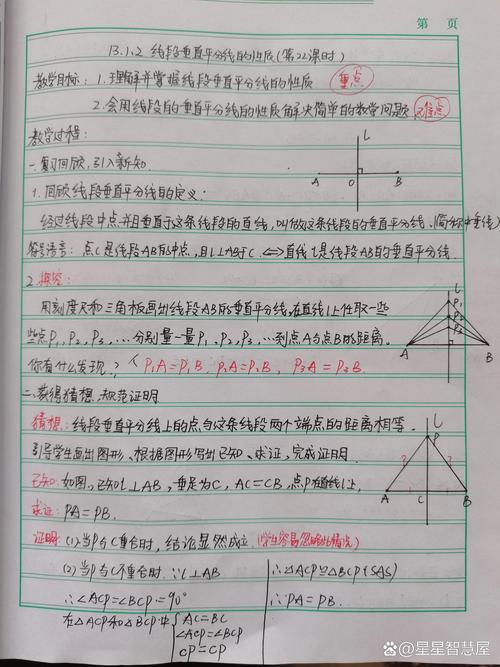 第 页
13.1.2 线段垂直平分线的性质(第22课时)
教学目标: 1. 理解并掌握线段垂直平分线的性质 重点
2. 会用线段的垂直平分线的性质解决简单的数学问题. 难点
教学过程:
一. 复习回顾, 引入新知.
1. 回顾线段垂直平分线的定义:
L
A O B
经过线段中点并且垂直于这条线段的直线, 叫做这条线段的垂直平分线. (简称中垂线)
符号语言: 点C是线段AB的中点, 且l⊥AB于C ⟺ 直线l是线段AB的垂直平分线.
2. 探究:
用刻度尺和三角板画出线段AB的垂直平分线, 在直线l上任取一些
些点P₁, P₂, P₃, … 分别量一量P₁, P₂, P₃, …到点A与点B的距离.
你有什么发现? P₁A=P₁B. P₂A=P₂B, P₃A=P₃B
L
P₁
P₂
P₃
A B
二. 获得猜想, 规范证明
猜想: 线段垂直平分线上的点与这条线段两个端点的距离相等.
引导学生画出图形、根据图形写出已知、求证, 完成证明.
已知: 如图, 已知l⊥AB, 垂足为C, AC=CB, 点P在直线l上.
求证: PA=PB.
L
P
? ?
A C B
证明: (1) 当P与C重合时, 结论显然成立. (学生容易忽略此情况)
(2) 当P与C不重合时 ∵l⊥AB
∴∠ACP=∠BCP=90°
在△ACP和△BCP中
AC=BC
∠ACP=∠BCP
CP=CP
∴△ACP≌△BCP(SAS)
∴PA=PB.
@星星智慧屋